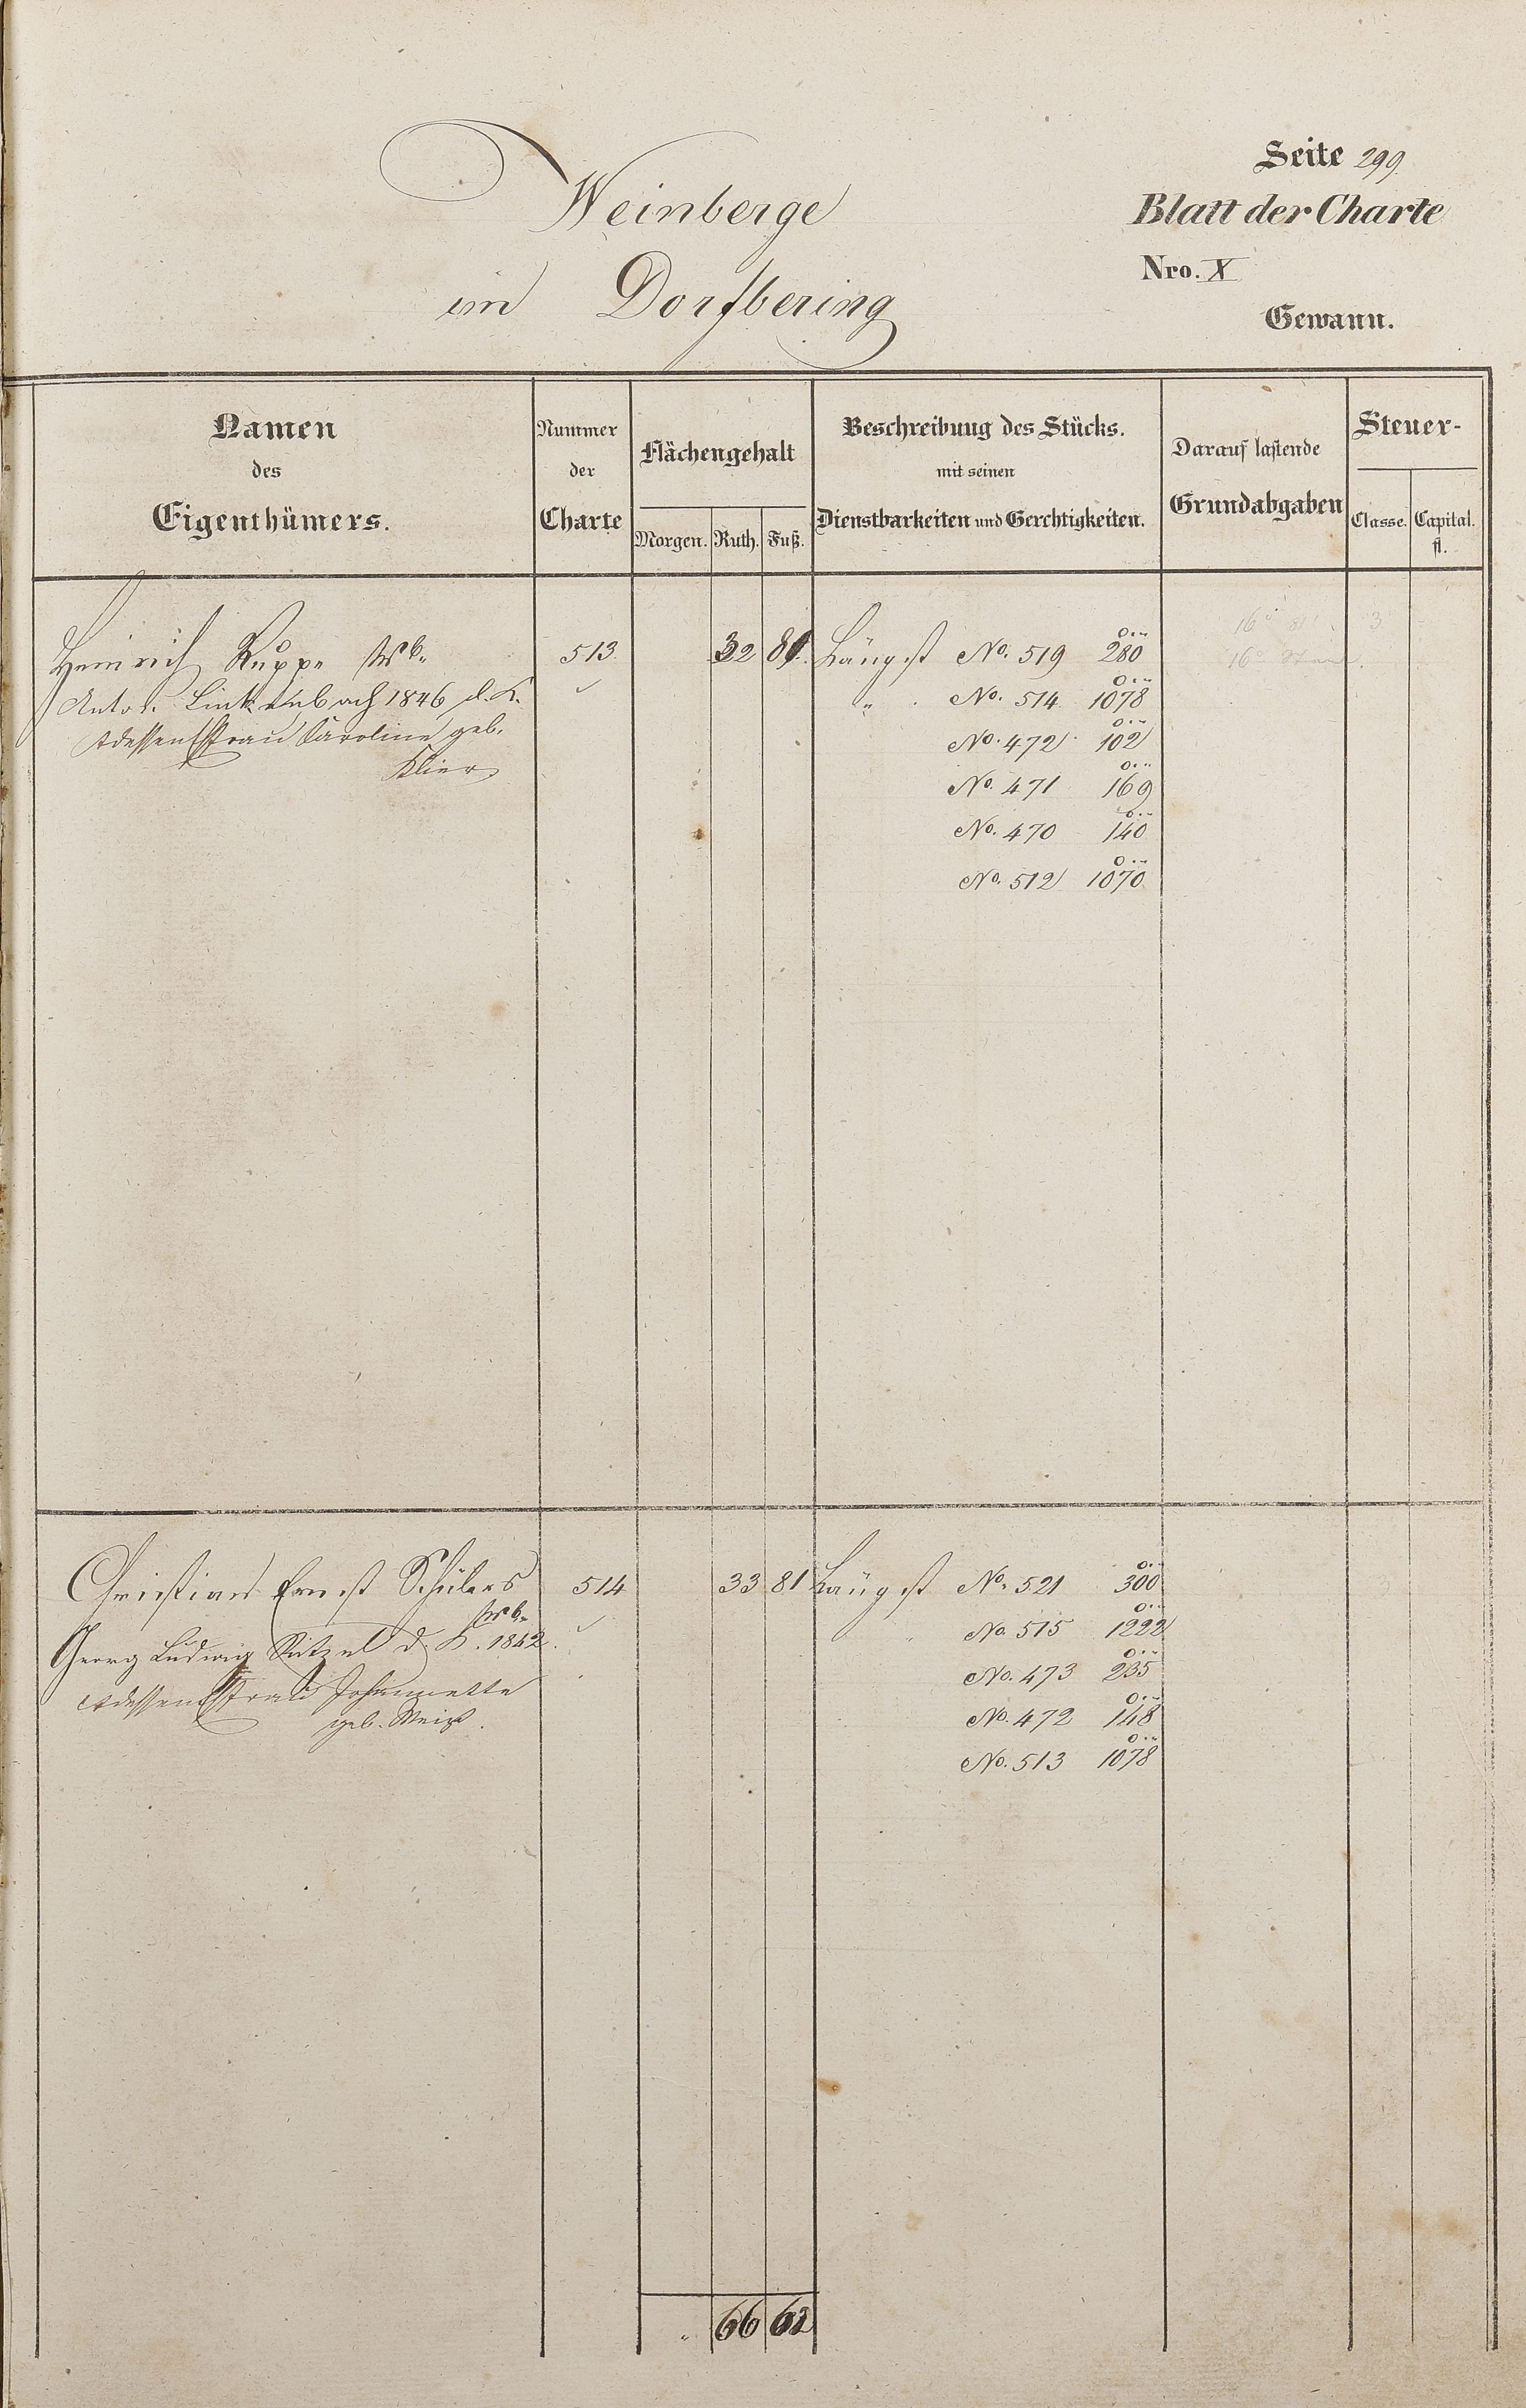 Seite 299.
Blatt der Charte
Nro. X
Gewann.
Weinberge
im Dorfbering
Namen
des
Eigenthümers.
Nummer
der
Charte
Flächengehalt
Morgen. Ruth. Fuß.
Beschreibung des Stücks.
mit seinen
Dienstbarkeiten und Gerechtigkeiten.
Darauf lastende
Grundabgaben
Steuer-
Classe. Capital.
fl.
Heinrich Ruppe Wb. 513 32 81 Längst No. 519 280
Linkenbach 1846 d. K. " No. 514 1078
dessen Efrau Caroline geb. No. 472 102
Klier No. 471 169
No. 470 140
No. 512 1070
Christian Ernst Schülers 514 33 81 Längst No. 521 300
Wb. No. 515 1222
Georg Ludwig d. K. 1842.
dessen Efrau Johannette No. 473 235
geb. No. 472 148
No. 513 1078
" 66 62